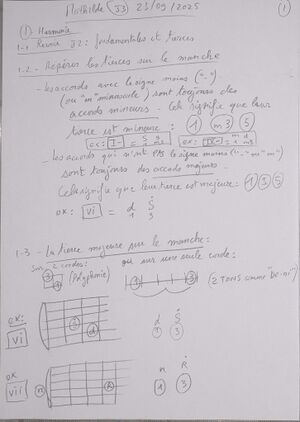 Mathilde J3 23/09/2025 1
① Harmonie
1-1 Revue J2: fondamentales et tierces
1-2 - Repérer les tierces sur le manche
- les accords avec le signe moins ("-").
(ou "m" minuscule) sont toujours des
accords mineurs. Cela signifie que leur
tierce est mineure : ① m3 ⑤
- les accords qui n'ont pas le signe moins ("-" ou "m")
sont toujours des accords majeurs.
Cela signifie que leur tierce est majeure: ① ③ ⑤
ex: vi = d S
1 3
1-3 - La tierce majeure sur le manche:
Sur 2 cordes: ou sur une seule corde:
(Polyphonie) 1 3 (2 TONS comme "Do-mi")
ex:
vi ③ d d S
1 3
ex
vii n R n R
1 3